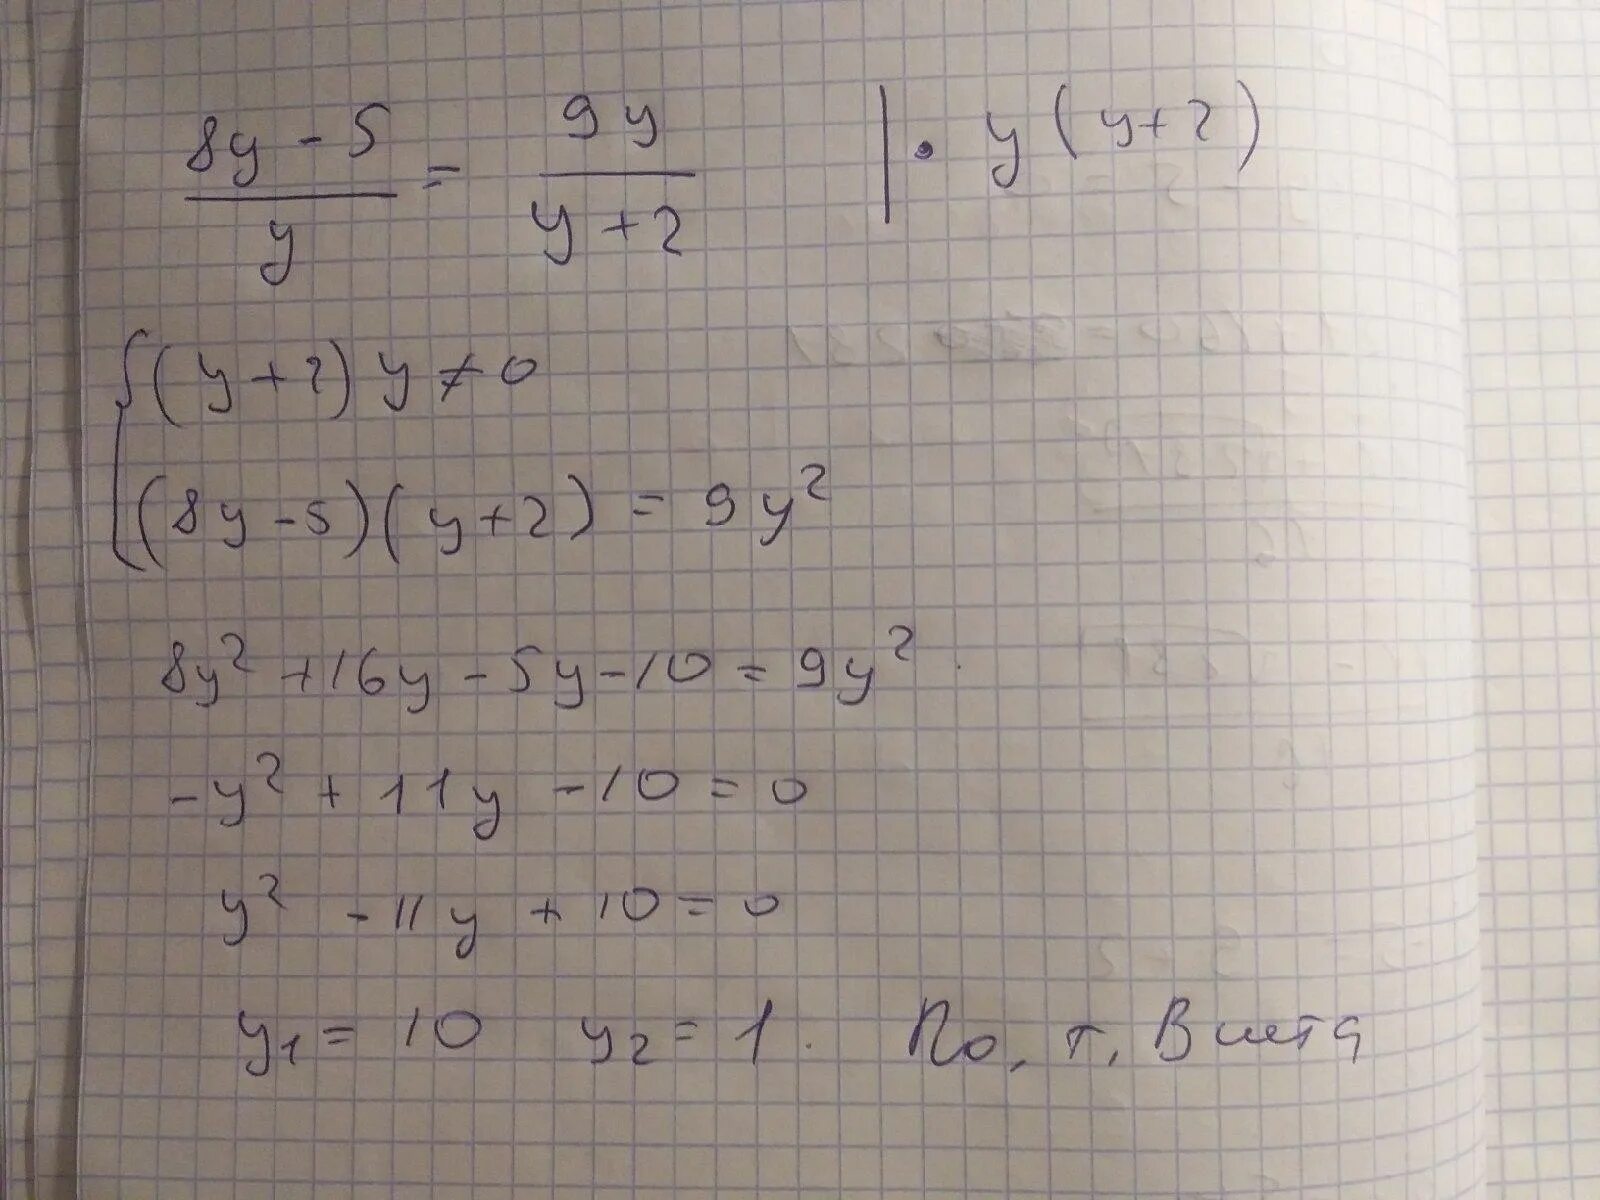 (8y - 5)/y = 9y/(y + 2) | · y (y + 2)
{ (y + 2) y ≠ 0
(8y - 5)(y + 2) = 9y²
8y² + 16y - 5y - 10 = 9y²
-y² + 11y - 10 = 0
y² - 11y + 10 = 0
y₁ = 10 y₂ = 1. По, т, Виета